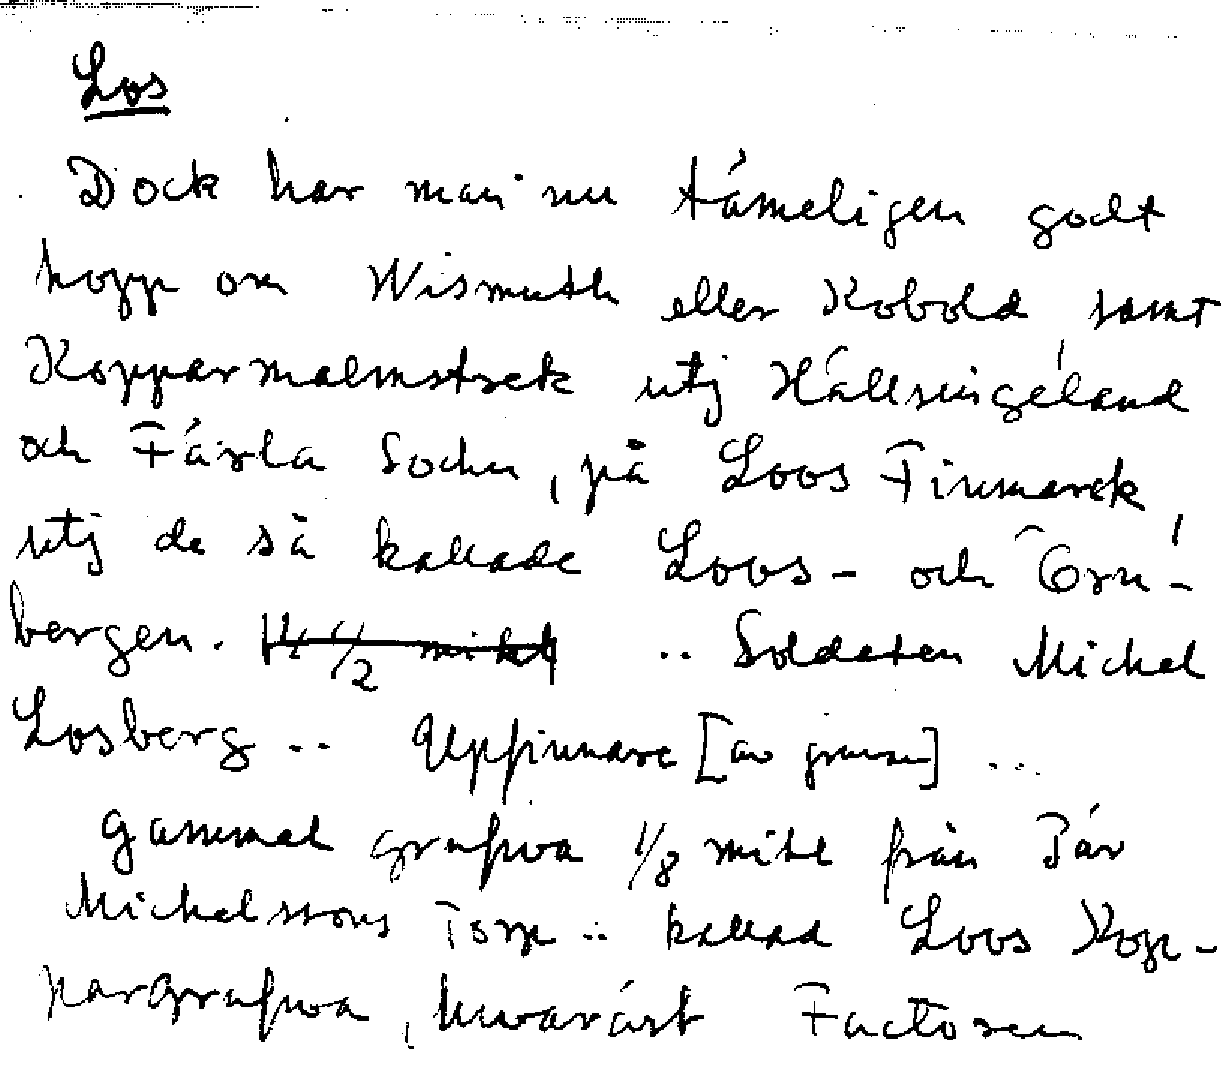 Los
Dock har man nu támeligen godt
hopp om Wismuth eller Kobold samt
Kopparmalmstrek utj Hällsingeland
och Färla Sochn, på Loos Finmarck,
utj de så kallade Loos- och Grû-
bergen. .. Soldaten Michel
Losberg .. Uppfinnare [av gruvan] ...
Gammal grufwa 1/8 mihl från Pár
Michelssons Torp .. kallad Loos Kop-
pargrufwa, hwarást Factoren